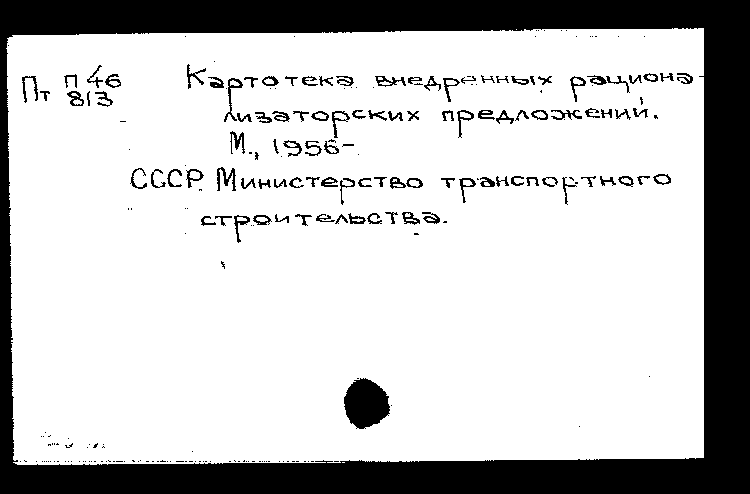 Пт П46 Картотека внедренных рациона-
813 лизаторских предложений.
М., 1956-
СССР. Министерство транспортного
строительства.